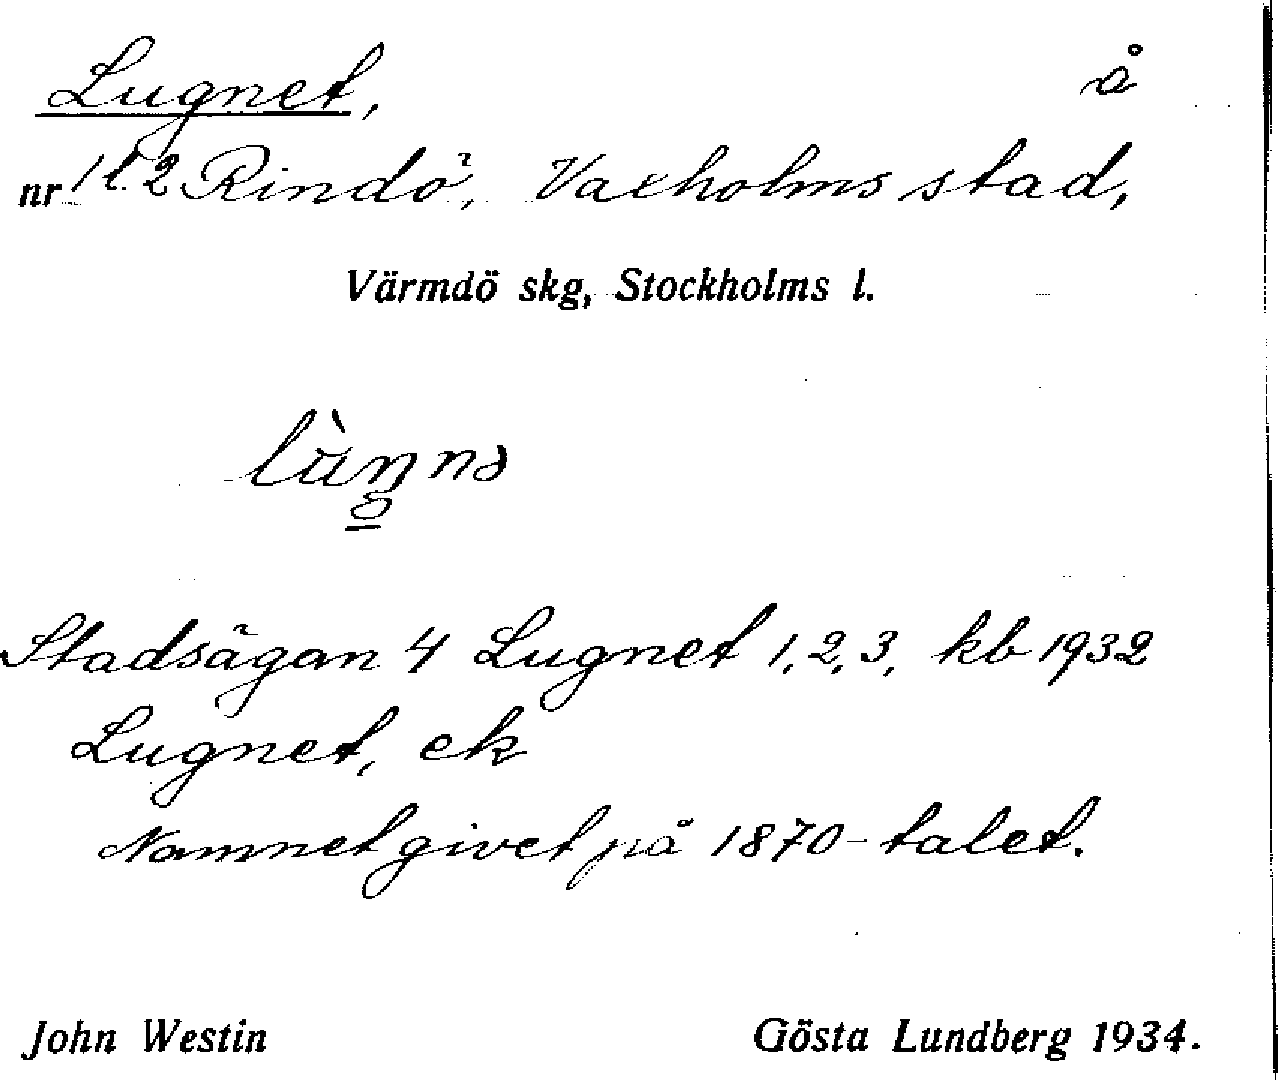 Lugnet, å
nr 1 l. 2 Rindö, Vaxholms stad,
Värmdö skg, Stockholms l.
Stadsägan 4 Lugnet 1, 2, 3, kb 1932
Lugnet, ek
Namnet givet på 1870-talet.
John Westin Gösta Lundberg 1934.